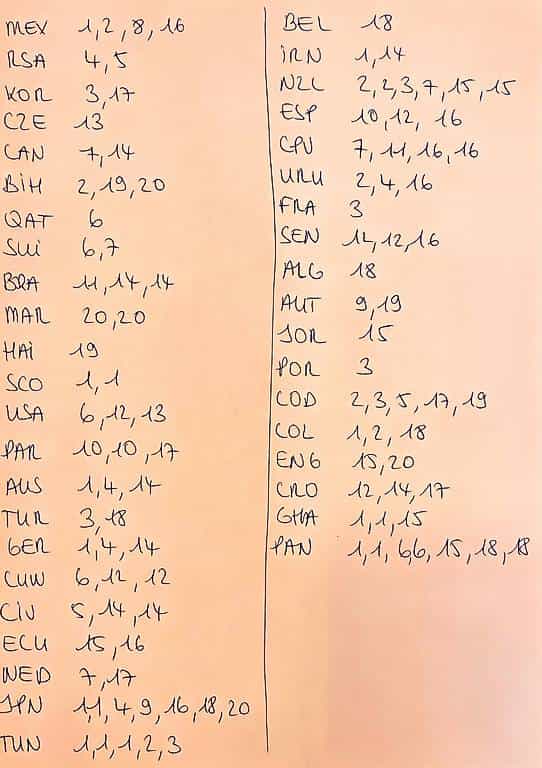 MEX 1,2,8,16
RSA 4,5
KOR 3,17
CZE 13
CAN 7,14
BiH 2,19,20
QAT 6
SUi 6,7
BRA 11,14,14
MAR 20,20
HAi 19
SCO 1,1
USA 6,12,13
PAR 10,10,17
AUS 1,4,14
TUR 3,18
GER 1,4,14
CUW 6,12,12
CiV 5,14,14
ECU 15,16
NED 7,17
JPN 1,1,4,9,16,18,20
TUN 1,1,1,2,3
BEL 18
iRN 1,14
NZL 2,2,3,7,15,15
ESP 10,12,16
CPV 7,11,16,16
URU 2,4,16
FRA 3
SEN 12,12,16
ALG 18
AUT 9,19
JOR 15
POR 3
COD 2,3,5,17,19
COL 1,2,18
ENG 15,20
CRO 12,14,17
GHA 1,1,15
PAN 1,1,6,6,15,18,18